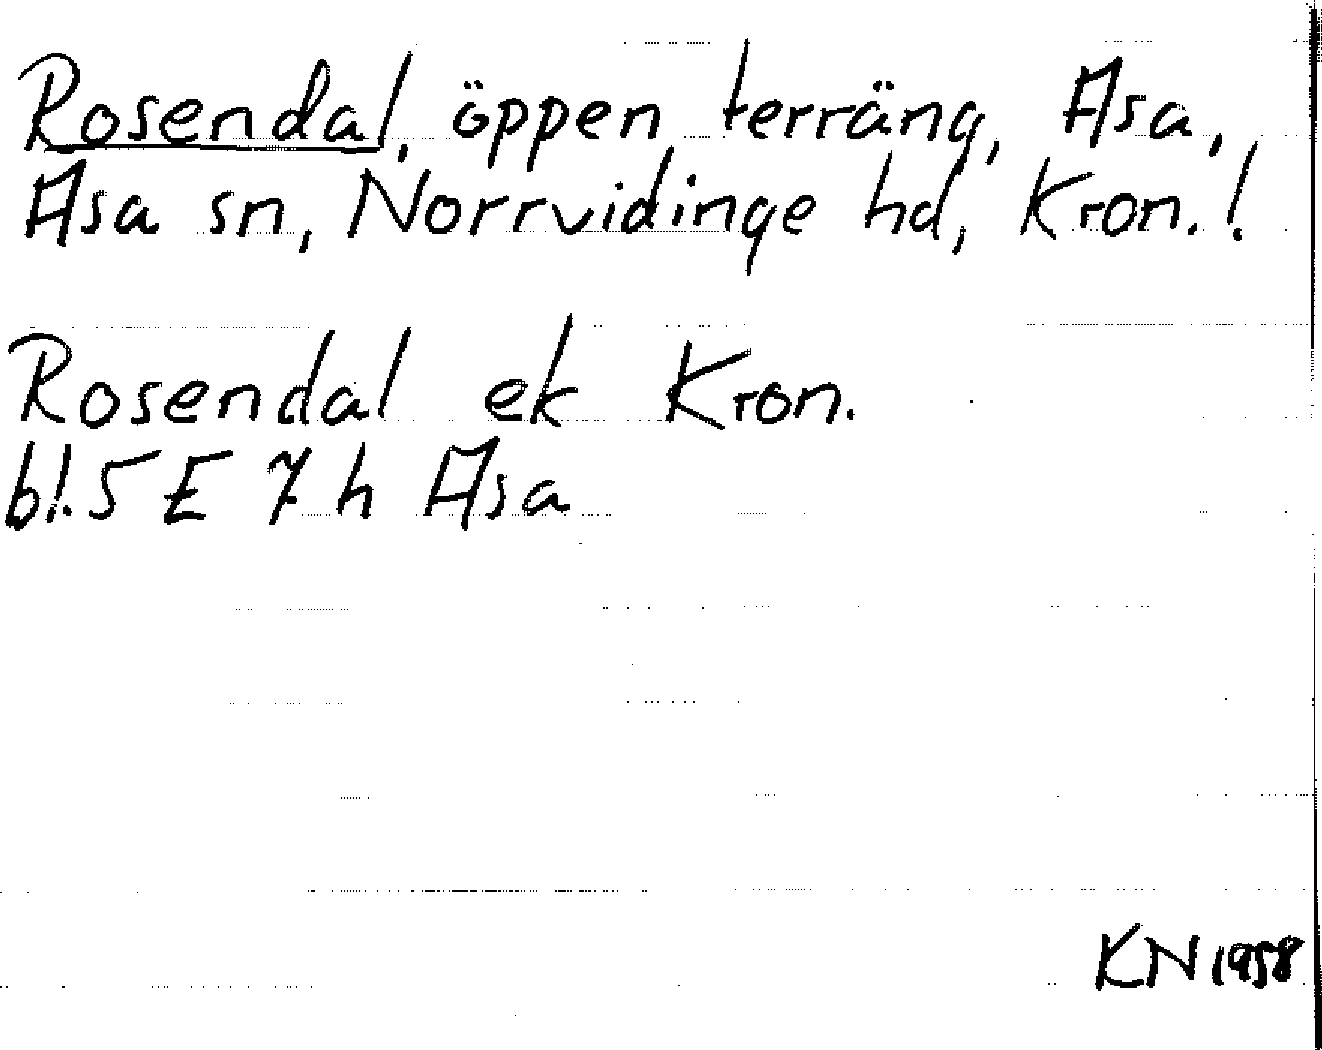 Rosendal, öppen terräng, Asa,
Asa sn, Norrvidinge hd, Kron.!
Rosendal ek Kron.
bl. 5 E 7 h Asa
KN 1958